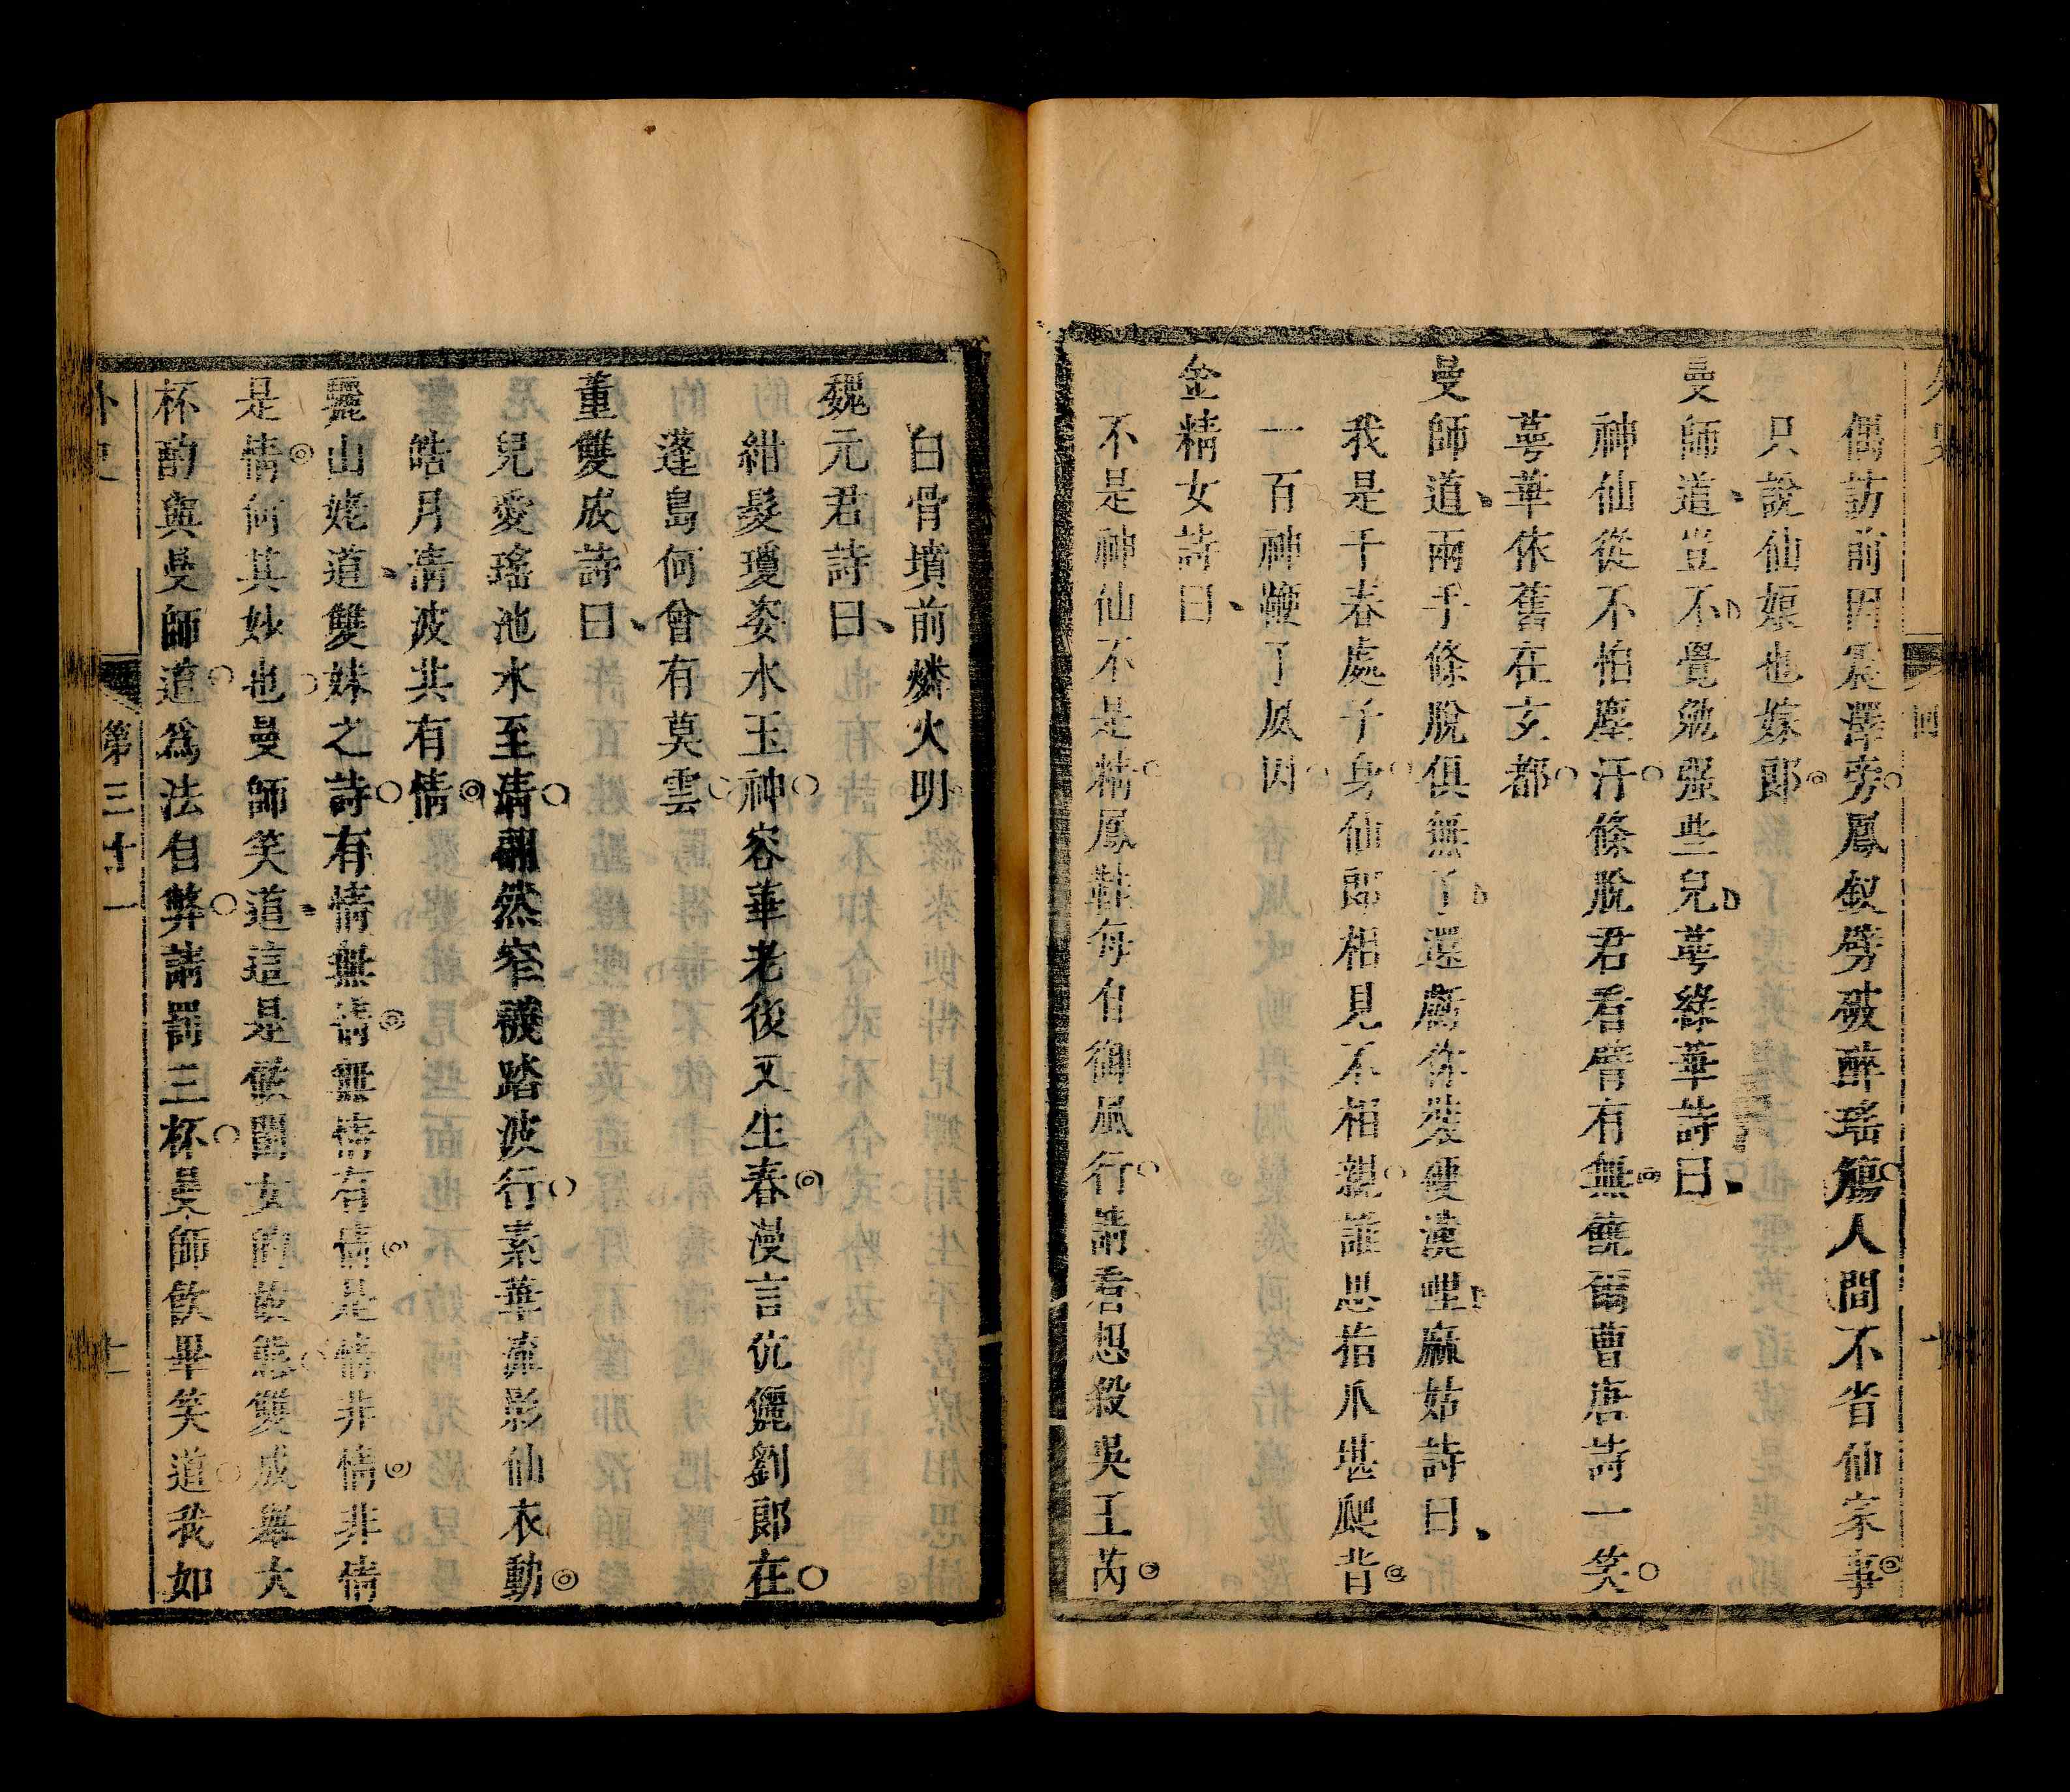 偶訪前因震澤旁鳳釵劈破醉瑤觴人間不省仙家事
只說仙娘也嫁郎
曼師道豈不覺勉强些兒萼綠華詩曰
神仙從不怕塵汙條脫君看臂有無饒爾曹唐詩一笑
萼華依舊在玄都
曼師道兩手條脫俱無了還虧你裝優漢哩麻姑詩曰
我是千春處子身仙郎相見不相親誰思指爪堪爬背
一百神鞭了夙因
金精女詩曰
不是神仙不是精鳳鞋每自御風行請君想殺吳王芮
白骨墳前燐火明
魏元君詩曰
紺髮瓊姿水玉神容華老後又生春漫言伉儷劉郎在
蓬島何曾有莫雲
董雙成詩曰
兒愛瑤池水至清翩然窄襪踏波行素華瀉影仙衣動
皓月清波共有情
驪山姥道雙妹之詩有情無情無情有情是情非情非情
是情何其妙也曼師笑道這是黌閨女的故態雙成舉大
杯酌與曼師道爲法自弊請罰三杯曼師飲畢笑道我如
外史
第三十一